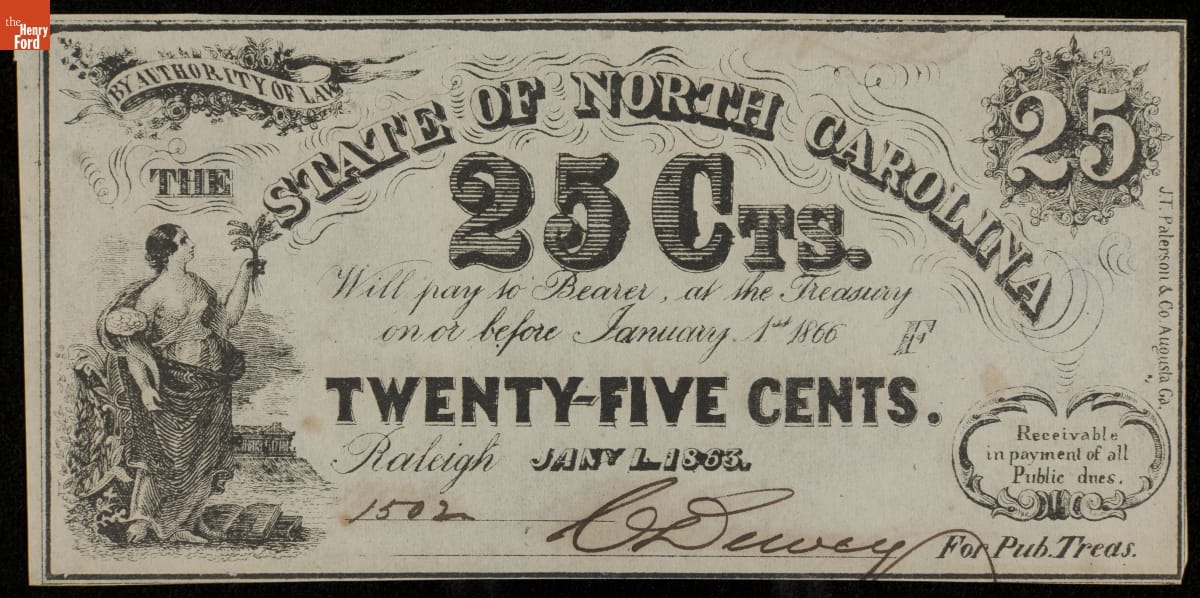 the Henry Ford
BY AUTHORITY OF LAW
THE STATE OF NORTH CAROLINA
25
25 CTS.
Will pay to Bearer, at the Treasury
on or before January 1st 1866 F
TWENTY-FIVE CENTS.
Raleigh JANY 1. 1863.
1502
C Dewey
For Pub. Treas.
Receivable
in payment of all
Public dues.
J.T. Paterson & Co. Augusta Ga.